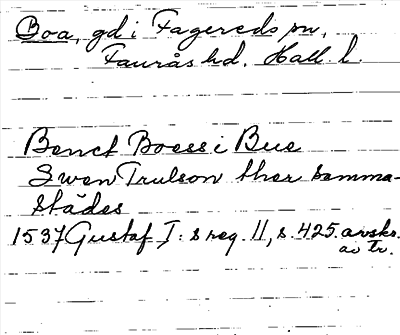 Boa, gd i Fagereds sn,
Faurås hd. Hall. l.
Benct Boess i Bue
Swen Trulson ther samma-
städes
1537 Gustaf I:s reg. 11, s. 425. avskr.
av Tr.